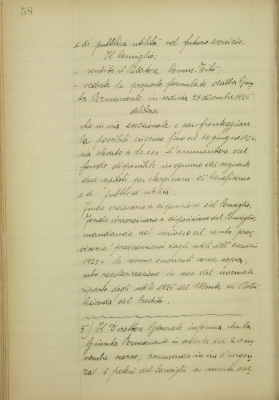 58
e di pubblica utilità nel futuro esercizio.
Il Consiglio;
- sentito il Direttore
- vedute le proposte formulate dalla Giunta
Permanente in seduta 29 dicembre 1925
delibera
che in via eccezionale e per fronteggiare
le possibili urgenze fino al 30 giugno 1926,
sia elevato a l'ammontare del
fondo disponibile in ognuno dei seguenti
due capitoli per elargizioni di beneficenza
e di pubblica utilità.
Fondo ordinario a disposizione del Consiglio,
Fondo straordinario a disposizione del Consiglio,
mandandosi ad
prelevazioni dagli utili dell'esercizio
1925 - le somme occorrenti come sopra,
salvo regolarizzazione in sede del normale
riparto degli utili 1925 del Monte ed
Aziende del Credito.
5/ Il Direttore Generale informa che la
Giunta Permanente in seduta del 20
novembre scorso, assumendo in via d'urgenza
i poteri del Consiglio a